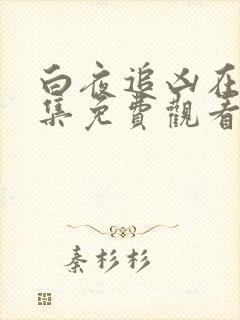 白夜追凶在
集免費觀看
秦杉杉